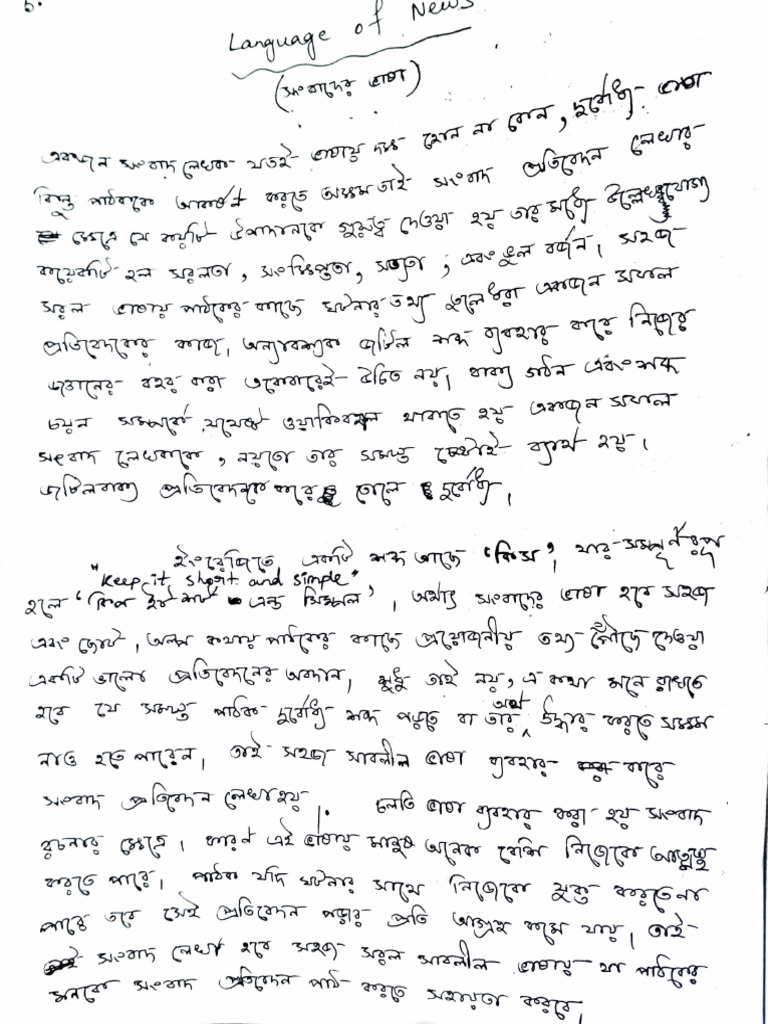 5.
Language of News
(সংবাদের ভাষা)
একজন সংবাদ লেখক যতই ভাষায় দক্ষ হোন না কেন, দুর্বোধ্য ভাষা
কিন্তু পাঠককে আকর্ষণ করতে অক্ষম তাই সংবাদ প্রতিবেদন লেখার
ক্ষেত্রে যে কয়টি উপাদানকে গুরুত্ব দেওয়া হয় তার মধ্যে উল্লেখযোগ্য
কয়েকটি হল সরলতা, সংক্ষিপ্ততা, সত্যতা, এবং ভুল বর্জন। সহজ
সরল ভাষায় পাঠকের কাছে ঘটনার তথ্য তুলে ধরা একজন সফল
প্রতিবেদকের কাজ। অন্যাবশ্যক জটিল শব্দ ব্যবহার করে নিজের
জ্ঞানের বহর করা একেবারেই উচিত নয়। বাক্য গঠন এবং শব্দ
চয়ন সম্পর্কে যথেষ্ট ওয়াকিবহাল থাকতে হয় একজন সফল
সংবাদ লেখককে, নয়তো তার সমস্ত চেষ্টাই ব্যার্থ হয়।
জটিলবাক্য প্রতিবেদনকে করে তোলে দুর্বোধ্য।
ইংরেজিতে একটি শব্দ আছে 'কিস', যার সম্পূর্ন রূপ
"Keep it short and simple"
হলে 'কিপ ইট শর্ট এন্ড সিম্পল', অর্থাৎ সংবাদের ভাষা হবে সহজ
এবং ছোট, অল্প কথায় পাঠকের কাছে প্রয়োজনীয় তথ্য পৌঁছে দেওয়া
একটি ভালো প্রতিবেদনের অবদান। শুধু তাই নয়, এ কথা মনে রাখতে
হবে যে সমস্ত পাঠক দুর্বোধ্য শব্দ পড়তে বা তার অর্থ উদ্ধার করতে সক্ষম
নাও হতে পারেন। তাই সহজ সাবলীল ভাষা ব্যবহার করে
সংবাদ প্রতিবেদন লেখা হয়। চলতি ভাষা ব্যবহার করা হয় সংবাদ
রচনার ক্ষেত্রে। কারণ এই ভাষায় মানুষ অনেক বেশি নিজেকে
করতে পারে। পাঠক যদি ঘটনার সাথে নিজেকে যুক্ত করতে না
পারে তবে সেই প্রতিবেদন পড়ার প্রতি আগ্রহ কমে যায়। তাই
সংবাদ লেখা হবে সহজ সরল সাবলীল ভাষায় যা পাঠকের
মনকে সংবাদ প্রতিবেদন পাঠ করতে সহায়তা করবে।